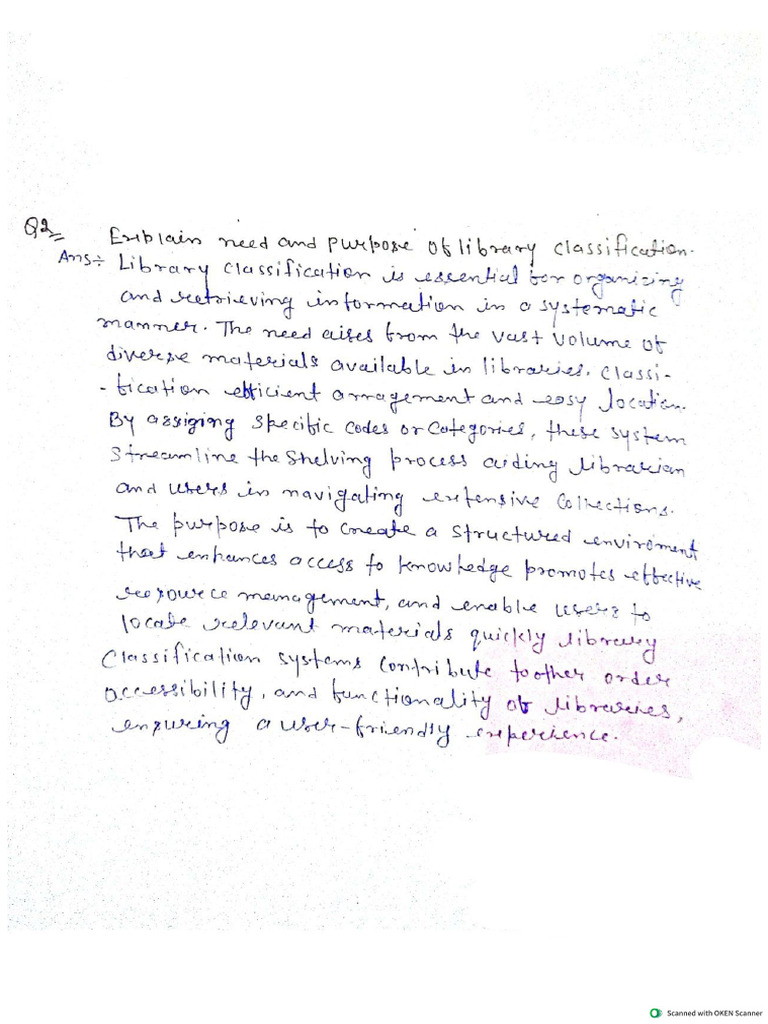 Q2 Explain need and purpose of library classification.
Ans:- Library classification is essential for organizing
and retrieving information in a systematic
manner. The need aises from the vast volume of
diverse materials available in libraries. Classi-
-fication efficient arragement and easy location.
By assiging specific codes or categories, these system
streamline the shelving process aiding librarian
and users in navigating extensive collections.
The purpose is to create a structured enviroment
that enhances access to knowledge promotes effective
resource management, and enable users to
locate relevant materials quickly library
Classification systems contribute to other order
accessibility, and functionality of libraries,
ensuring a user-friendly experience.
Scanned with OKEN Scanner